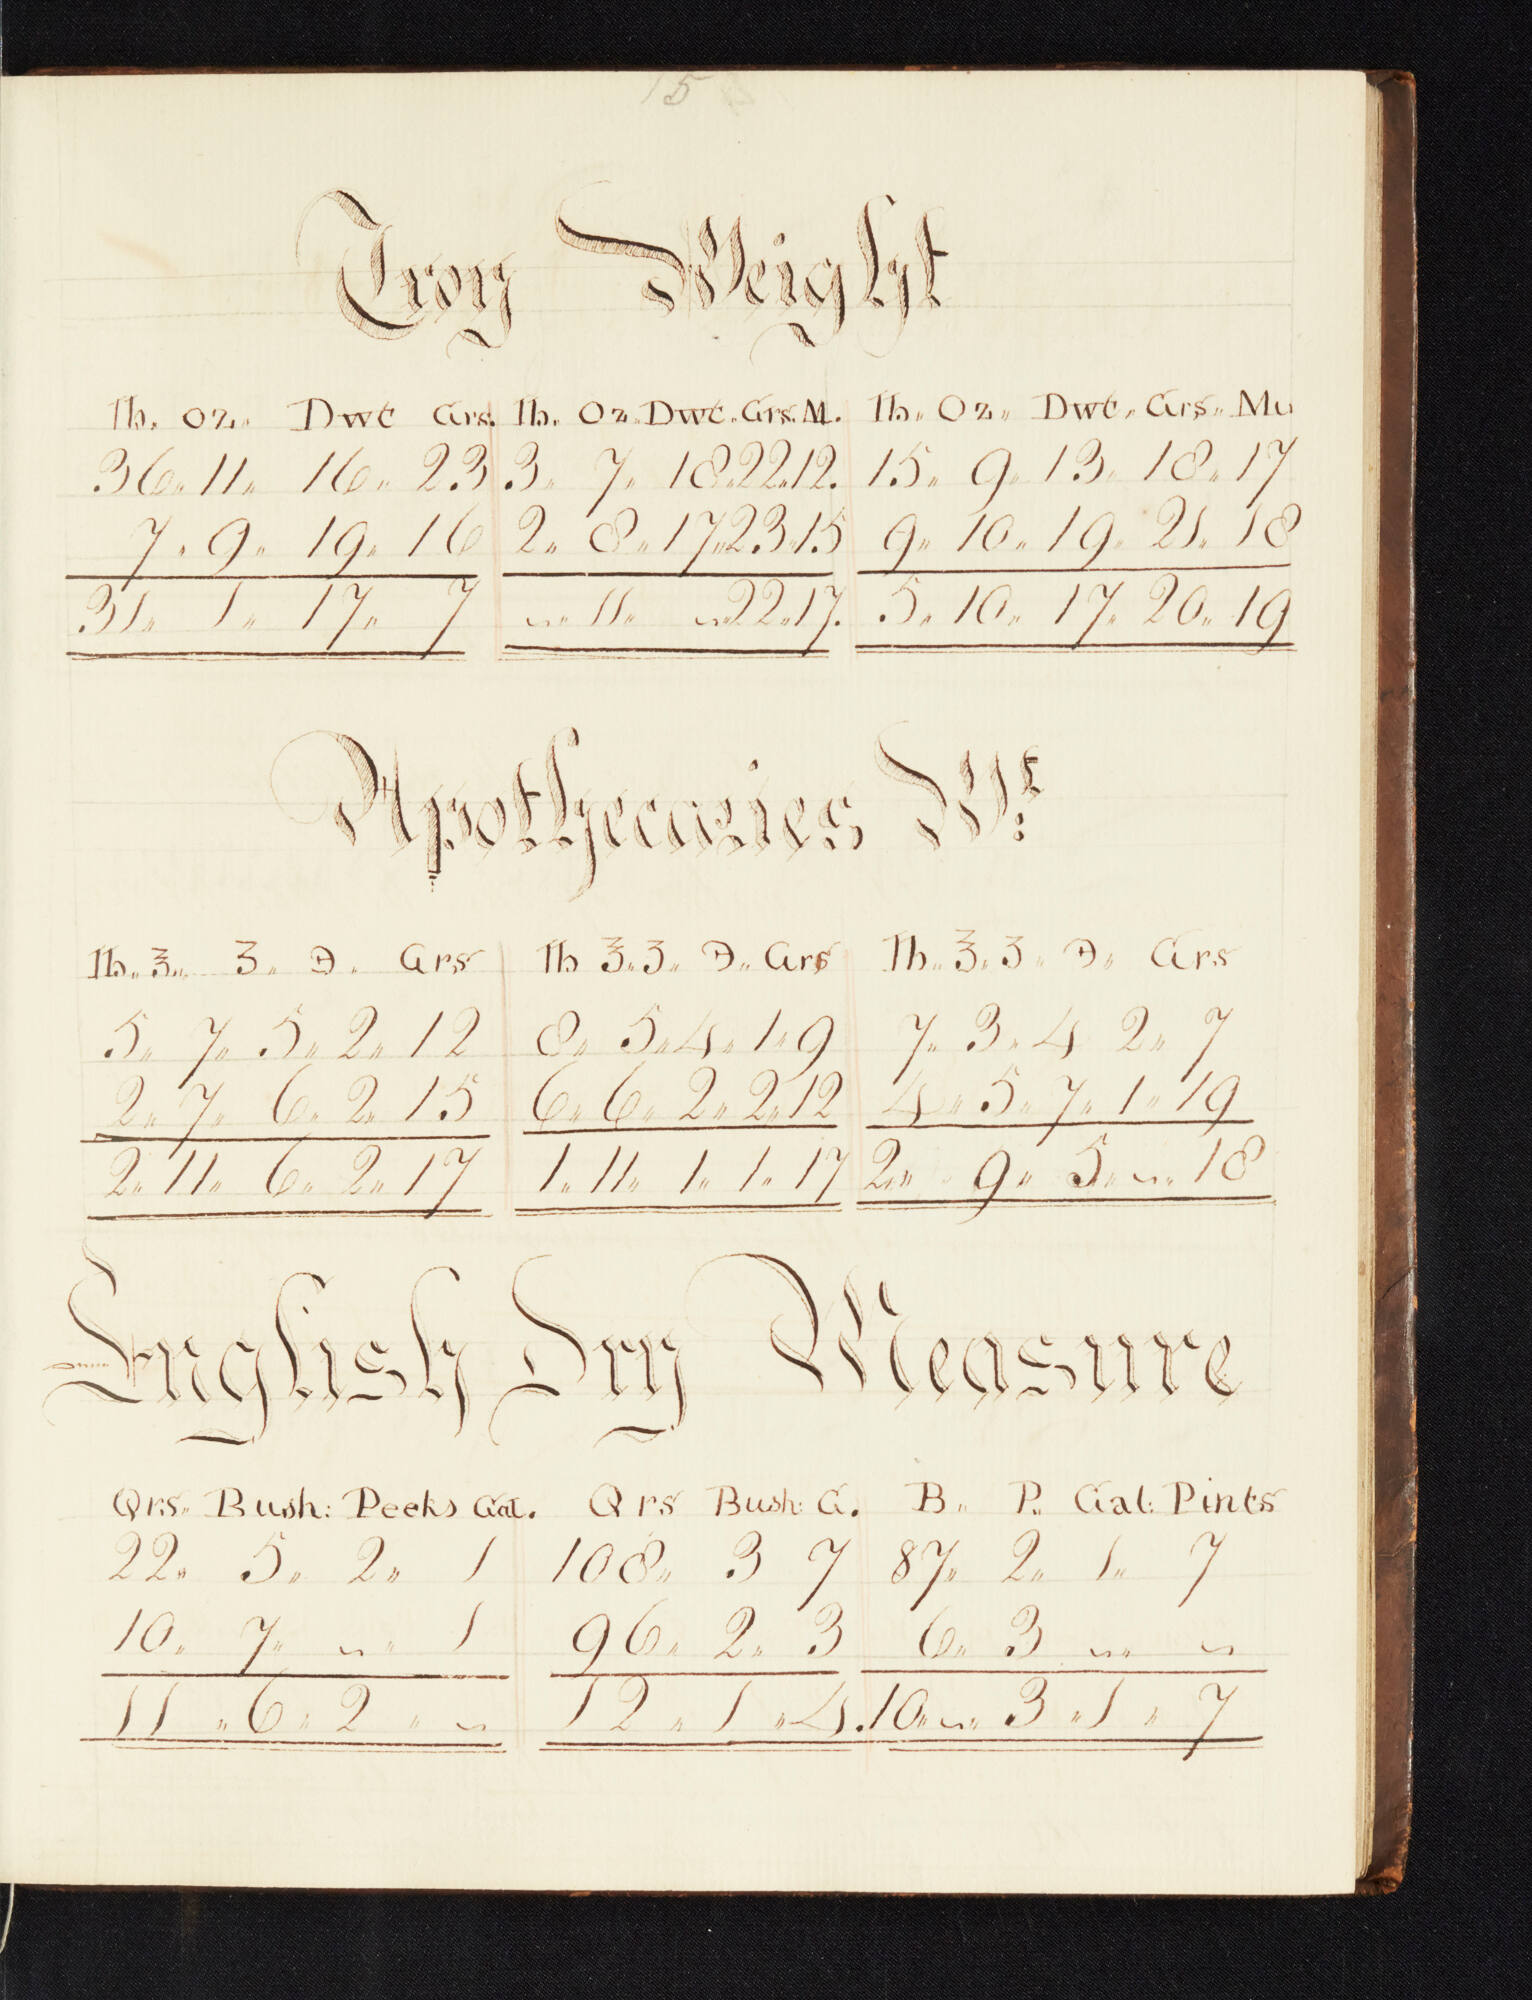 15
Troy Weight
lb. oz. Dwt Grs. lb. Oz. Dwt. Grs. M. lb. Oz. Dwt. Grs. Mu
36. 11. 16. 23 3. 7. 18. 22. 12. 15. 9. 13. 18. 17
7. 9. 19. 16 2. 8. 17. 23. 15 9. 10. 19. 21. 18
31. 1. 17. 7 ~. 11. ~. 22. 17. 5. 10. 17. 20. 19
Apothecaries Wt:
lb. ℥. ʒ. ℈. Grs lb ℥. ʒ. ℈. Grs lb. ℥. ʒ. ℈. Grs
5. 7. 5. 2. 12 8. 5. 4. 1. 9 7. 3. 4 2. 7
2. 7. 6. 2. 15 6. 6. 2. 2. 12 4. 5. 7. 1. 19
2. 11. 6. 2. 17 1. 11. 1. 1. 17 2. 9. 5. ~. 18
English Dry Measure
Qrs. Bush: Peeks Gal. Qrs Bush: G. B. P. Gal: Pints
22. 5. 2. 1 108. 3 7 87. 2. 1. 7
10. 7. ~. 1 96. 2. 3 6. 3 ~. ~
11. 6. 2. ~ 12. 1. 4. 10. ~. 3. 1. 7